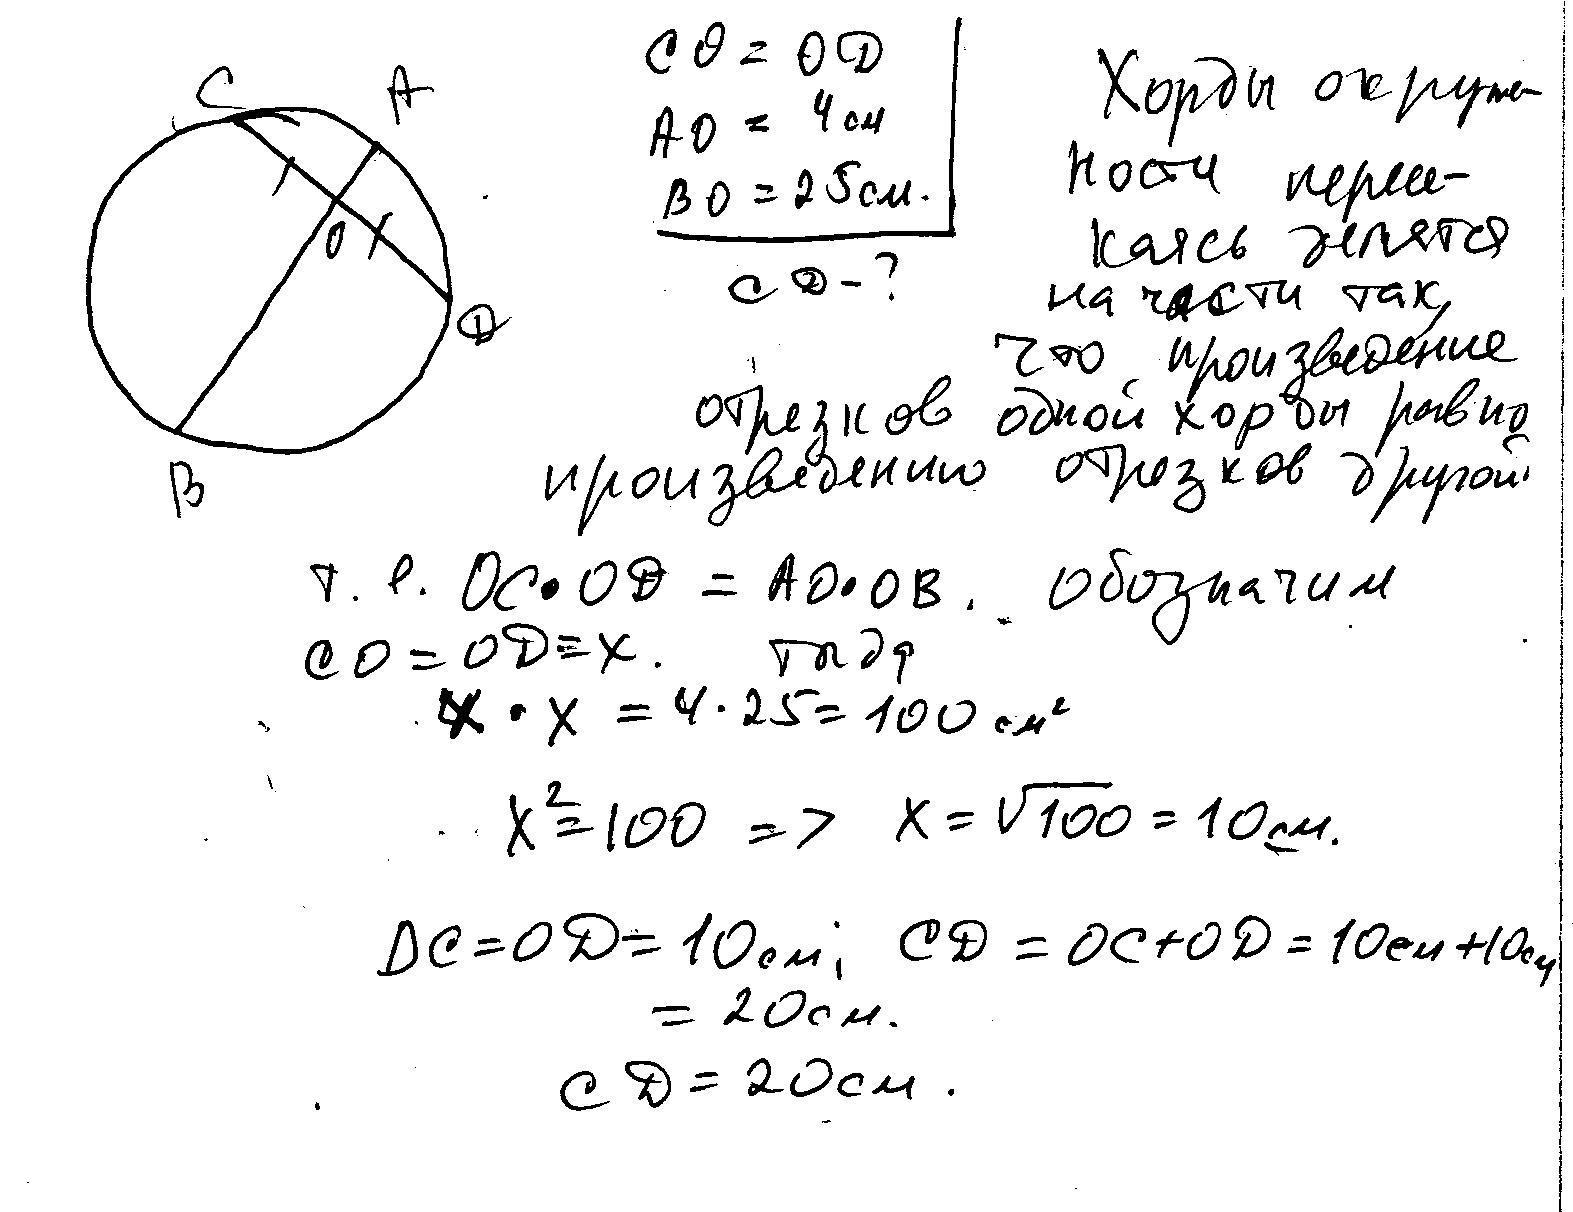 C A
O
D
B
CO = OD
AO = 4 см
BO = 25 см.
CD - ?
Хорды окруж-
ности пересе-
каясь делятся
на части так,
что произведение
отрезков одной хорды равно
произведению отрезков другой
т. е. OC • OD = AO • OB. обозначим
CO = OD = x.
x • x = 4 · 25 = 100 см²
x² = 100 => x = √100 = 10 см.
OC = OD = 10 см; CD = OC + OD = 10 см + 10 см
= 20 см.
CD = 20 см.